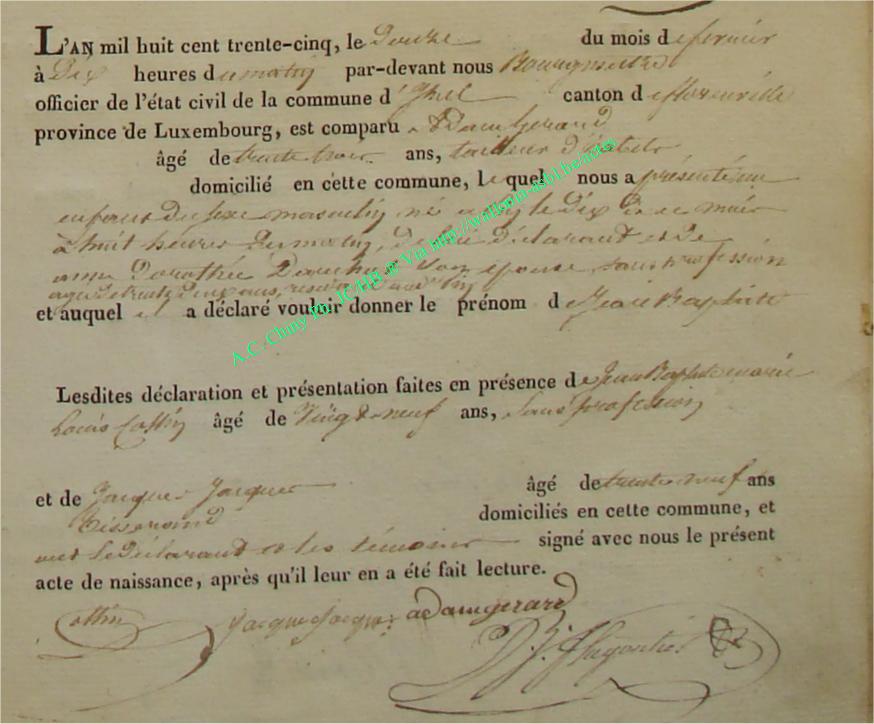 L'AN mil huit cent trente-cinq, le Douze du mois de fevrier
à Dix heures du matin par-devant nous Bourgmestre
officier de l'état civil de la commune d' canton de florenville
province de Luxembourg, est comparu adam Gerard
âgé de trente trois ans, tailleur d'habits
domicilié en cette commune, lequel nous a présenté un
enfant du sexe masculin né a le Dix de ce mois
à huit heures du matin, de lui Déclarant et de
anne Dorothée son epouse, sans profession
agée de trente Deux ans,
et auquel il a déclaré vouloir donner le prénom de Jean Baptiste
Lesdites déclaration et présentation faites en présence de Jean Baptiste marie
Louis Collin âgé de Vingt neuf ans, Sans profession
et de Jacques Jacques âgé de trente neuf ans
Tisserand domiciliés en cette commune, et
ont le Déclarant et les témoins signé avec nous le présent
acte de naissance, après qu'il leur en a été fait lecture.
Collin Jacque Jacques adam gerard
A.C. Chiny Ph. IC/HB @ Via http://wallonia-asbl.be/actes